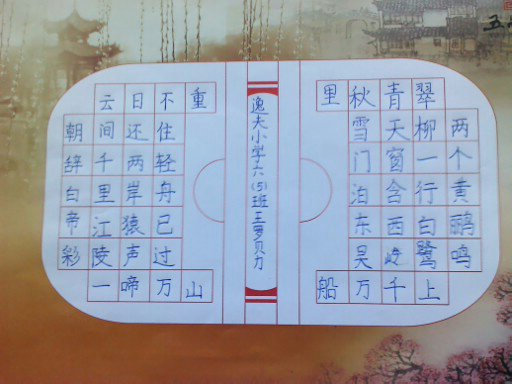 朝辞白帝彩
云间千里江陵一
日还两岸猿声啼
不住轻舟已过万
重山
逸夫小学六(5)班王罗贝力
两个黄鹂鸣
翠柳一行白鹭上
青天窗含西岭千
秋雪门泊东吴万
里船